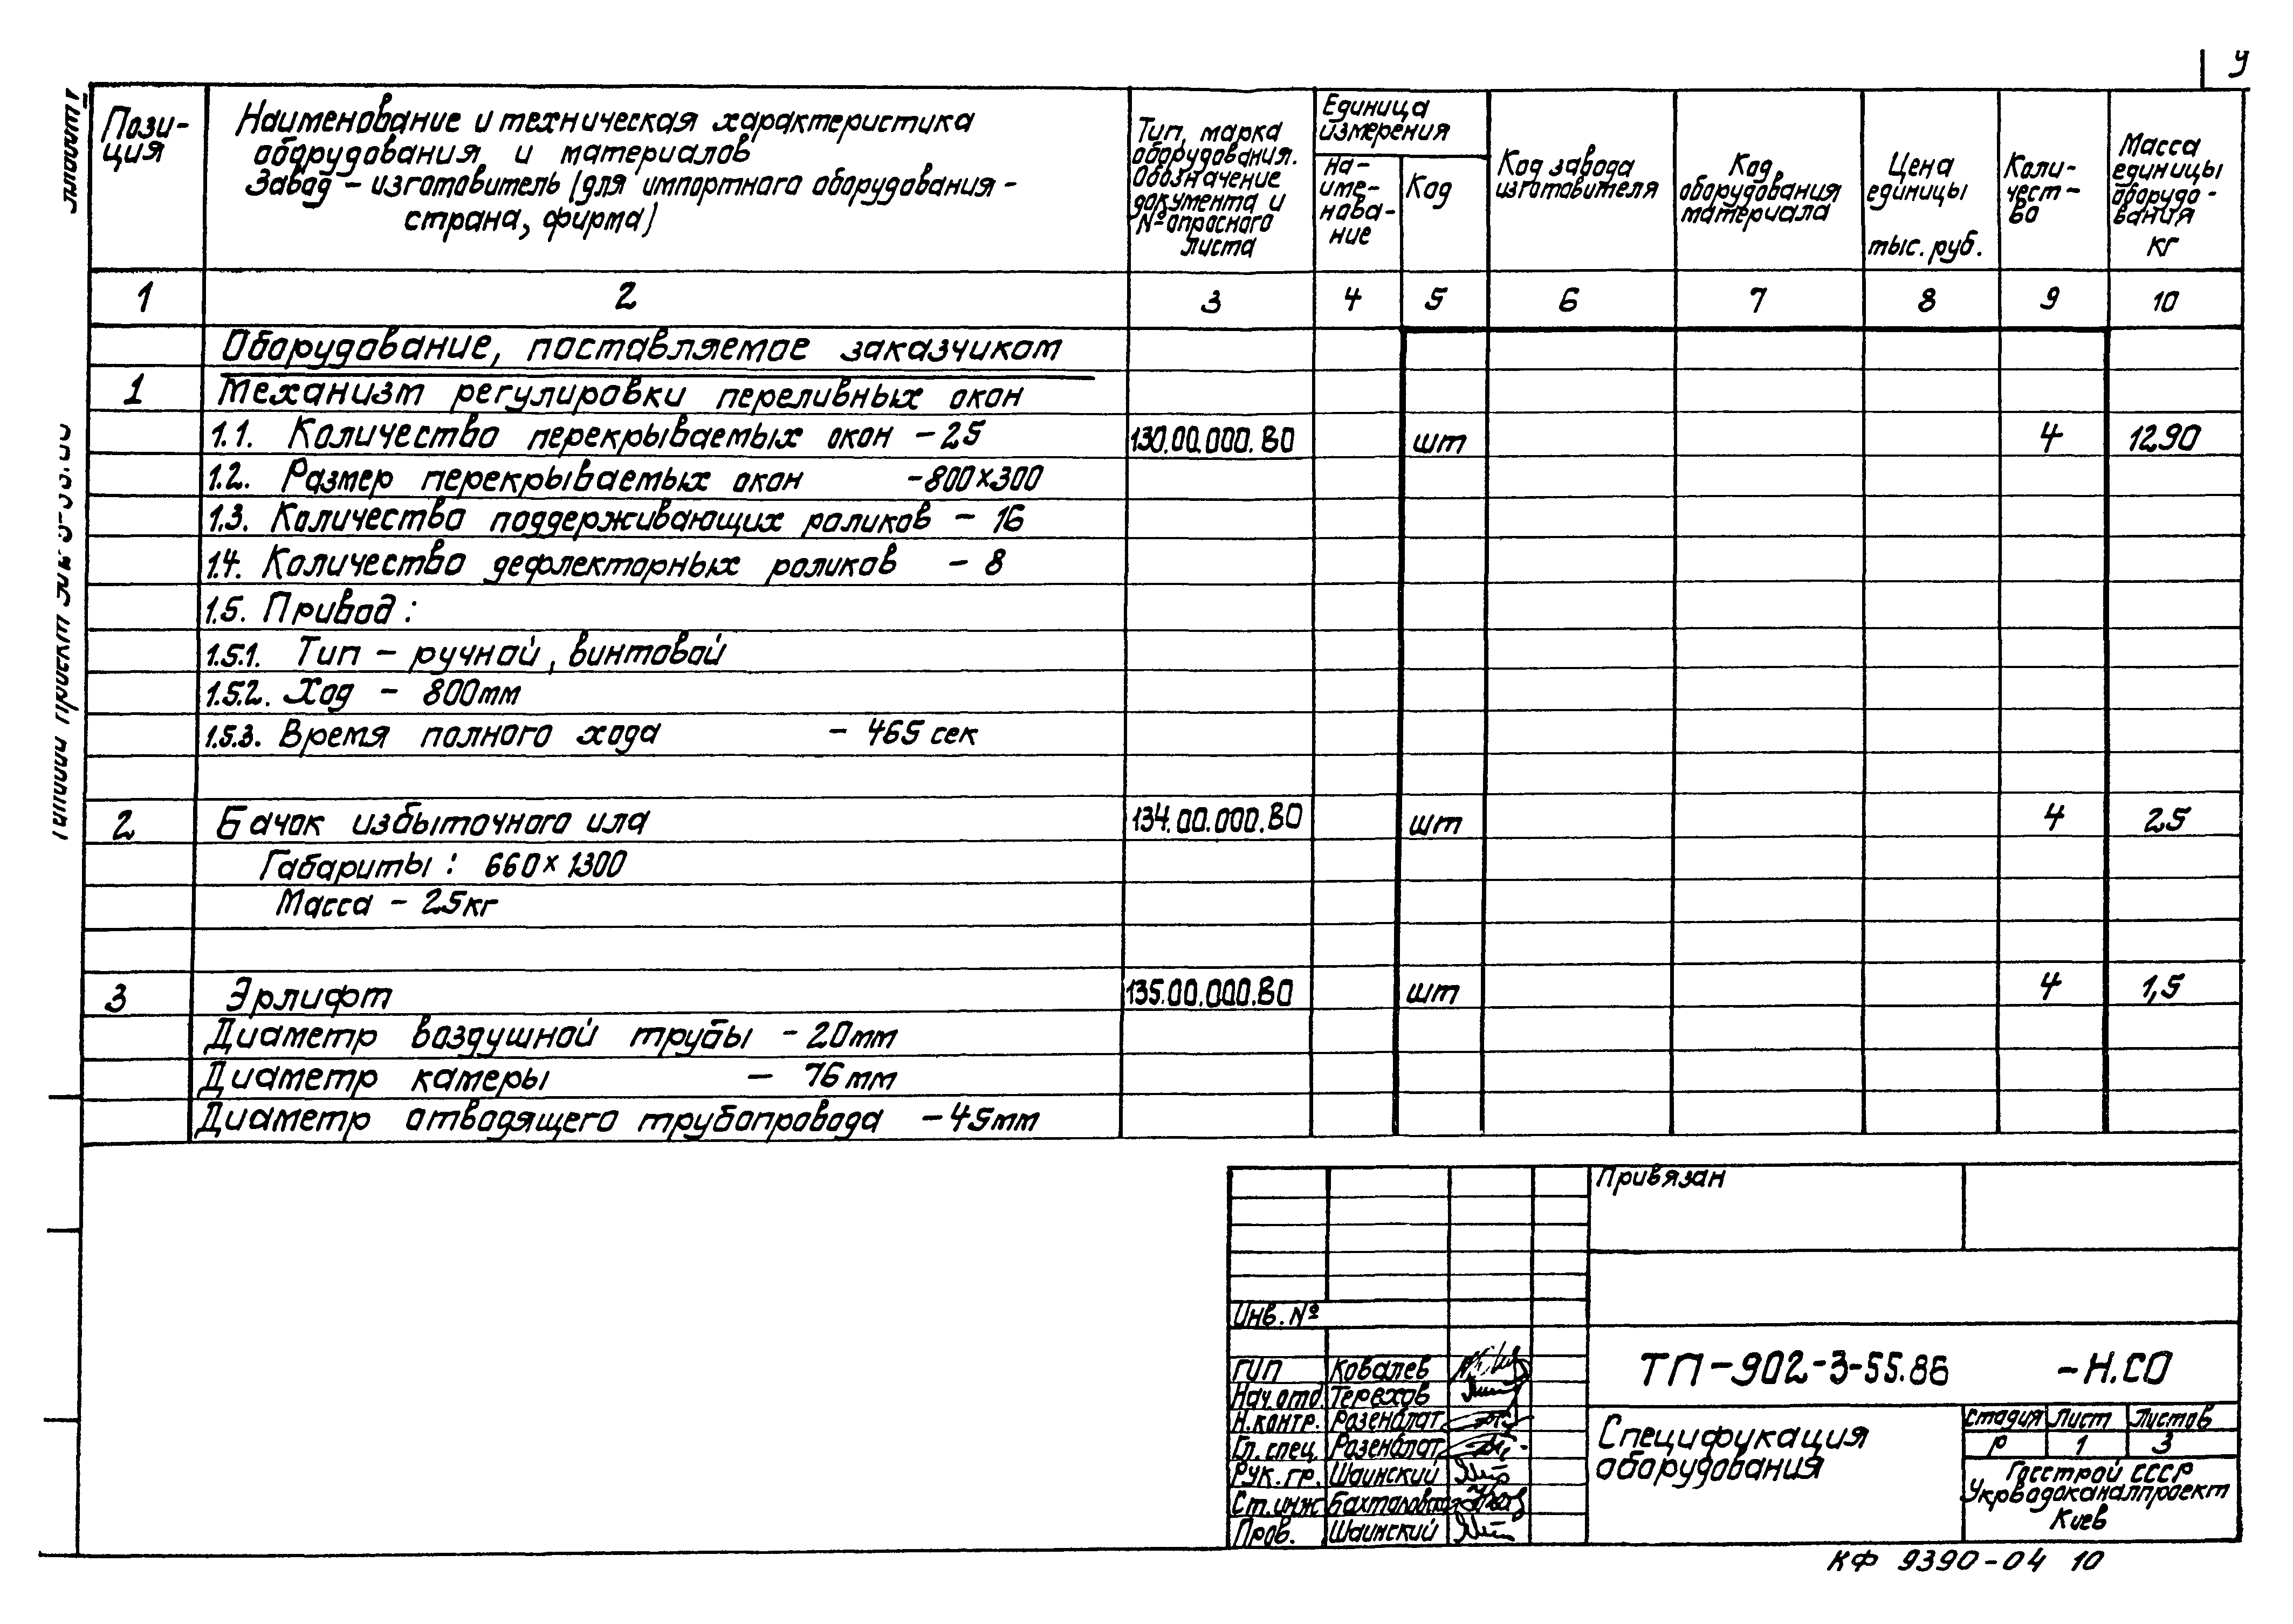 9
Пози-
ция
Наименование и техническая характеристика
оборудования и материалов
Завод – изготовитель (для импортного оборудования -
страна, фирма)
Тип, марка
оборудования.
Обозначение
документа и
№ опросного
листа
Единица
измерения
На-
име-
нова-
ние
Код
Код завода
изготовителя
Код
оборудования
материала
Цена
единицы
тыс. руб.
Коли-
чест-
во
Масса
единицы
оборудо-
вания
кг
1 2 3 4 5 6 7 8 9 10
Оборудование, поставляемое заказчиком
1 Механизм регулировки переливных окон
1.1. Количество перекрываемых окон – 25 130.00.000.ВО шт 4 1290
1.2. Размер перекрываемых окон – 800×300
1.3. Количество поддерживающих роликов – 16
1.4. Количество дефлекторных роликов – 8
1.5. Привод :
1.5.1. Тип – ручной, винтовой
1.5.2. Ход – 800мм
1.5.3. Время полного хода – 465 сек
2 Бачок избыточного ила 134.00.000.ВО шт 4 25
Габариты : 660×1300
Масса – 25кг
3 Эрлифт 135.00.000.ВО шт 4 1,5
Диаметр воздушной трубы – 20мм
Диаметр камеры – 76мм
Диаметр отводящего трубопровода – 45мм
Привязан
Инв. №
ГИП Ковалев
Нач.отд. Терехов
Н.контр. Розенблат
Гл. спец. Розенблат
Рук. гр. Шаинский
Ст.инж
Пров. Шаинский
ТП-902-3-55.86 -Н.СО
Спецификация
оборудования
Стадия Лист Листов
Р 1 3
Госстрой СССР
Укрводоканалпроект
Киев
КФ 9390-04 10